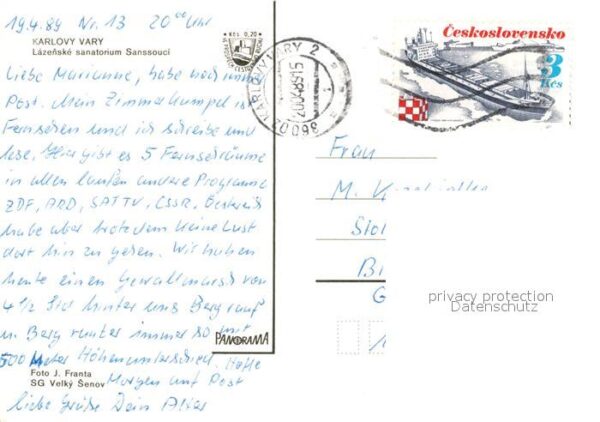 19.4.89 Nr. 13 20⁰⁰ Uhr
KARLOVY VARY
Lázeňské sanatorium Sanssouci
Kčs 0,20
Liebe Marianne, habe noch immer
Post. Mein Zimmerkumpel is
Fernsehen und ich schreibe und
lese. Hier gibt es 5 Fernsehräume
in allen laufen andere Programme
ZDF, ARD, SAT TV, CSSR, Österreich
habe aber trotzdem keine Lust
dort hin zu gehen. Wir haben
heute einen Gewaltmarsch von
4 1/2 Std hinter uns Berg rauf
Berg runter immer so mit
500 Meter Höhenunterschied. Hoffe
Morgen auf Post
Liebe Grüße Dein Alter
Foto J. Franta
SG Velký Šenov
PANORAMA
KARLOVY VARY 2
20.04.89.15
Československo
3
Kčs
Frau
M.
privacy protection
Datenschutz